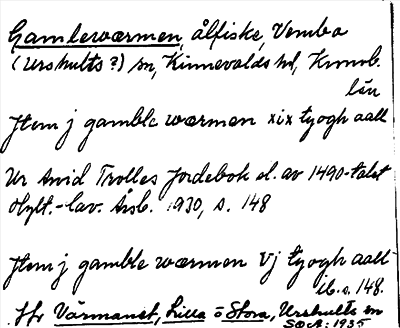 Gamlewærmen, ålfiske, Vemboa
(Urshults?) sn, Kinnevalds hd, Kronob.
län
Jtem j gamble wærmen xix tyogh aall
Ur Arvid Trolles Jordebok sl. av 1490-talet
Hylt.-Cav. Årsb. 1930, s. 148
Jtem j gamble wærmen vj tyogh aall
ib. s. 148.
Jfr Värmanet, Lilla o Stora, Urshults sn
SOA: 1935